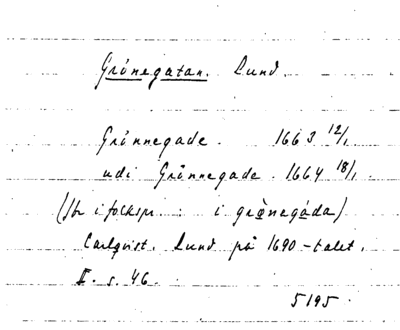 Grönegatan. Lund.
Grönnegade. 1663 12/1
udi Grönnegade. 1664 18/1.
i folkspr. : i grönegåda)
Carlqvist. Lund på 1690-talet.
II. s. 46.
5195.